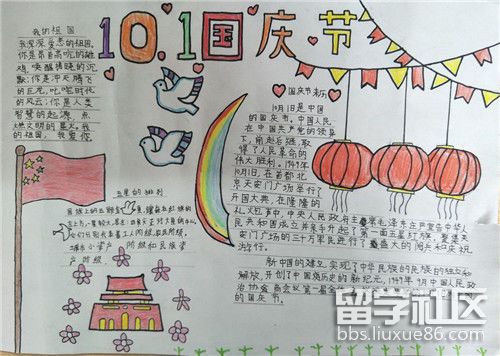 10.1国庆节
我的祖国
我深深爱恋的祖国。
你是昂首高吭的雄
鸡，唤醒拂晓的沉
默；你是冲天腾飞
的巨龙，叱咤时代
的风云；你是人类
智慧的起源，点
燃文明的星火。我
的祖国，我爱你
五星的排列
国庆节来历
10月1日是中国
的国庆节。中国人民
在中国共产党的领导
下，前赴后继，取
得了人民革命的
伟大胜利。1949年
10月1日，在首都北
京天安门广场举行了
开国大典，在隆隆的
礼炮声中，中央人民政府主席毛泽东庄严宣告中华人
民共和国成立并亲手升起了第一面五星红旗。聚集天
安门广场的三十万军民进行了盛大的阅兵和庆祝
游行。
新中国的建立，实现了中华民族的民族的独立和
解放，开创了中国历史的新纪元。1949年9月中国人民政
的国庆节。
留学社区
bbs.liuxue86.com